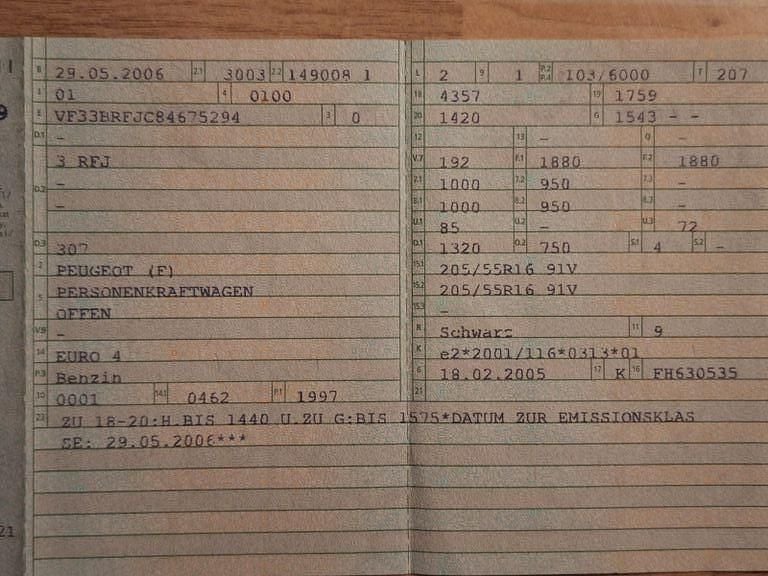 B 29.05.2006 2.1 3003 2.2 149008 1
J 01 4 0100
E VF33BRFJC84675294 3 0
D.1 –
3 RFJ
–
D.2 –
D.3 307
2 PEUGEOT (F)
5 PERSONENKRAFTWAGEN
OFFEN
V.9 –
14 EURO 4
P.3 Benzin
10 0001 14.1 0462 P.1 1997
L 2 9 1 P.2 P.4 103/6000 T 207
18 4357 19 1759
20 1420 G 1543 - -
12 13 – Q –
V.7 192 F.1 1880 F.2 1880
7.1 1000 7.2 950 7.3 –
8.1 1000 8.2 950 8.3 –
U.1 85 U.2 – U.3 72
O.1 1320 O.2 750 S.1 4 S.2 –
15.1 205/55R16 91V
15.2 205/55R16 91V
15.3 –
R Schwarz 11 9
K e2*2001/116*0313*01
6 18.02.2005 17 K 16 FH630535
21
22 ZU 18-20:H.BIS 1440 U.ZU G:BIS 1575*DATUM ZUR EMISSIONSKLAS
SE: 29.05.2006***
21